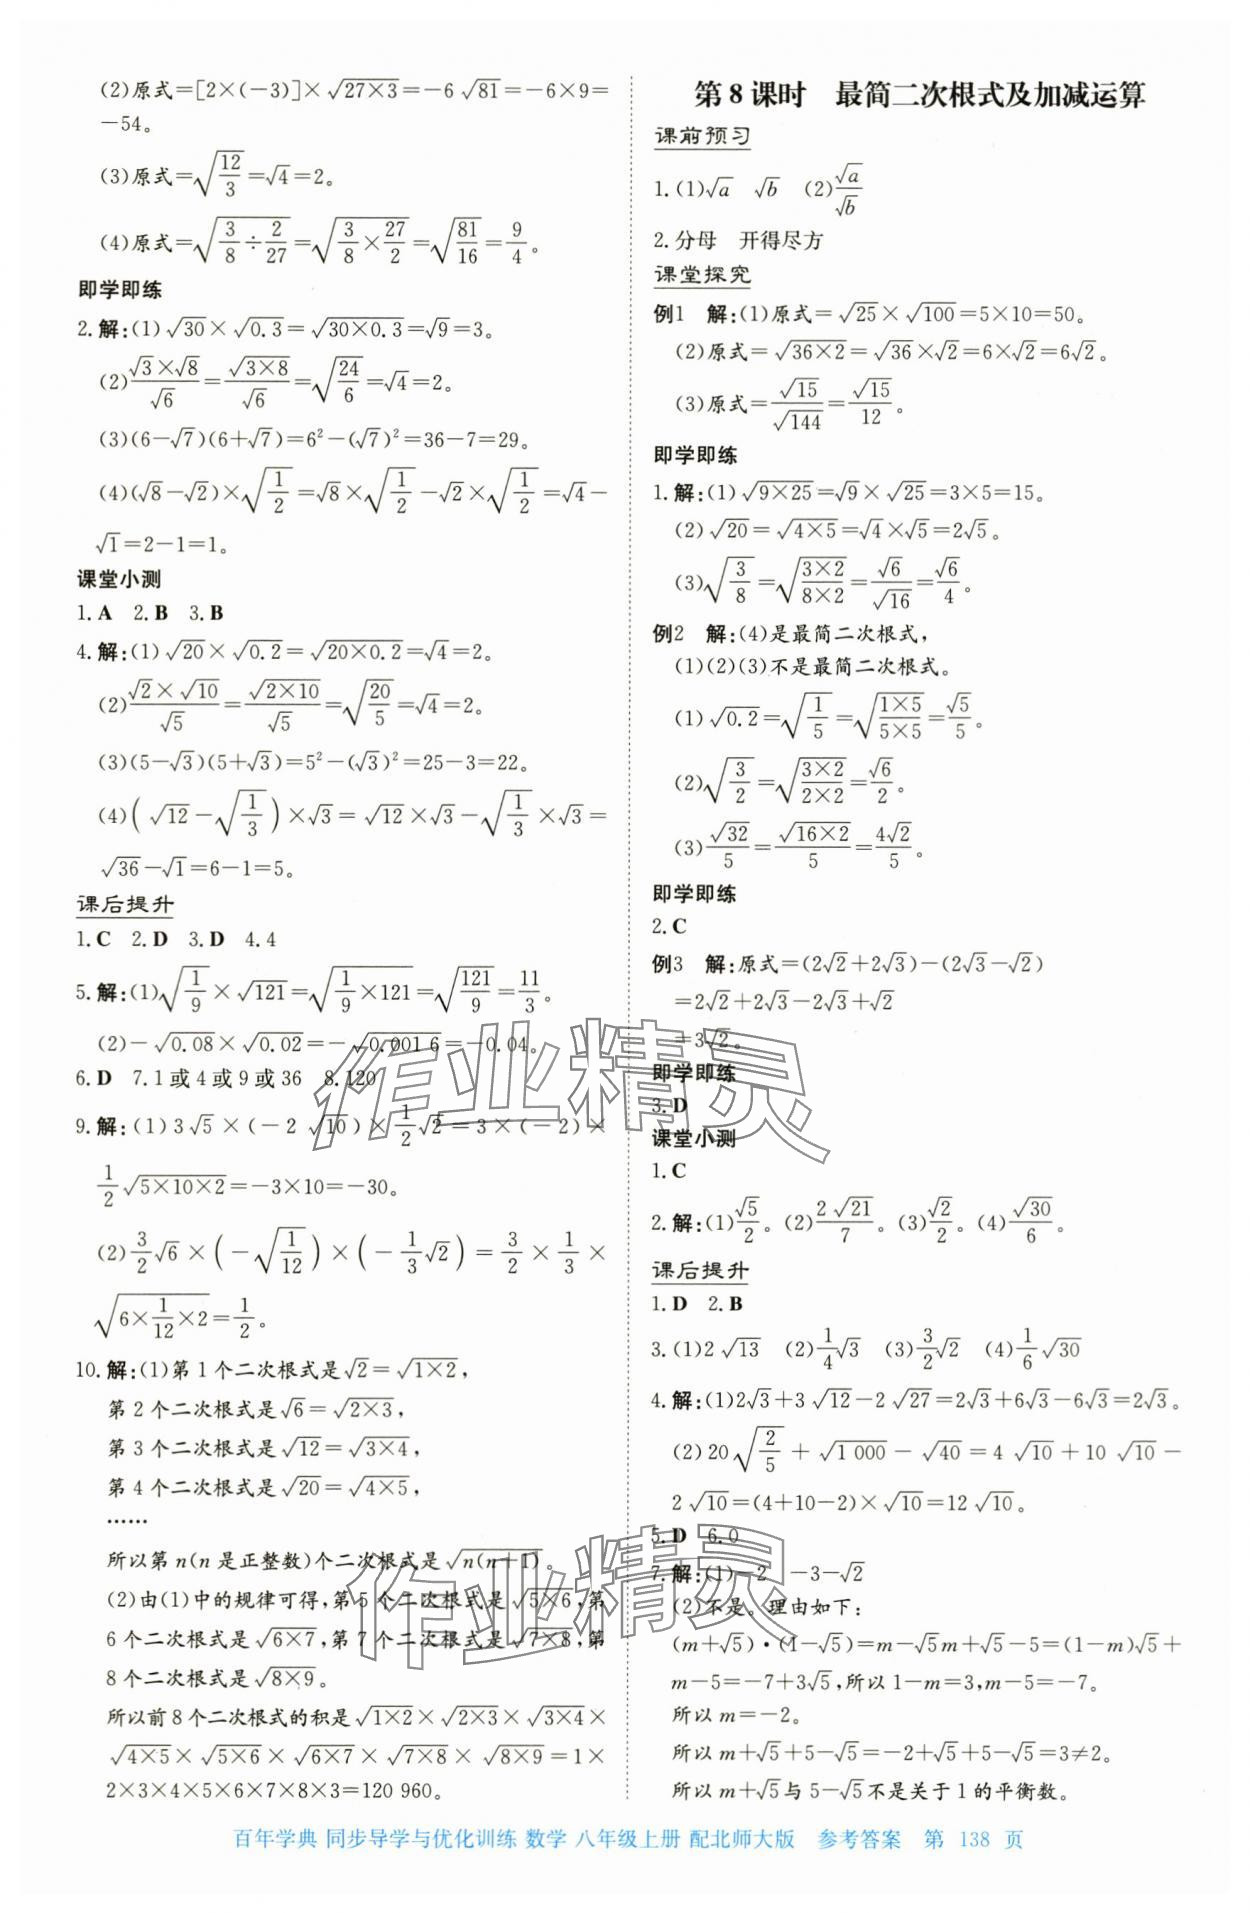 (2)原式=[2×(-3)]×√(27×3)=-6√81=-6×9=
-54。
(3)原式=√(12/3)=√4=2。
(4)原式=√(3/8÷2/27)=√(3/8×27/2)=√(81/16)=9/4。
即学即练
2.解:(1)√30×√0.3=√(30×0.3)=√9=3。
(2)(√3×√8)/√6=√(3×8)/√6=√(24/6)=√4=2。
(3)(6-√7)(6+√7)=6²-(√7)²=36-7=29。
(4)(√8-√2)×√(1/2)=√8×√(1/2)-√2×√(1/2)=√4-
√1=2-1=1。
课堂小测
1.A 2.B 3.B
4.解:(1)√20×√0.2=√(20×0.2)=√4=2。
(2)(√2×√10)/√5=√(2×10)/√5=√(20/5)=√4=2。
(3)(5-√3)(5+√3)=5²-(√3)²=25-3=22。
(4)(√12-√(1/3))×√3=√12×√3-√(1/3)×√3=
√36-√1=6-1=5。
课后提升
1.C 2.D 3.D 4.4
5.解:(1)√(1/9)×√121=√(1/9×121)=√(121/9)=11/3。
(2)-√0.08×√0.02=-√0.001 6=-0.04。
6.D 7.1或4或9或36 8.120
9.解:(1)3√5×(-2√10)×1/2√2=3×(-2)×
1/2√(5×10×2)=-3×10=-30。
(2)3/2√6×(-√(1/12))×(-1/3√2)=3/2×1/3×
√(6×1/12×2)=1/2。
10.解:(1)第1个二次根式是√2=√(1×2),
第2个二次根式是√6=√(2×3),
第3个二次根式是√12=√(3×4),
第4个二次根式是√20=√(4×5),
……
所以第n(n是正整数)个二次根式是√(n(n+1))。
(2)由(1)中的规律可得,第5个二次根式是√(5×6),第
6个二次根式是√(6×7),第7个二次根式是√(7×8),第
8个二次根式是√(8×9)。
所以前8个二次根式的积是√(1×2)×√(2×3)×√(3×4)×
√(4×5)×√(5×6)×√(6×7)×√(7×8)×√(8×9)=1×
2×3×4×5×6×7×8×3=120 960。
第8课时 最简二次根式及加减运算
课前预习
1.(1)√a √b (2)√a/√b
2.分母 开得尽方
课堂探究
例1 解:(1)原式=√25×√100=5×10=50。
(2)原式=√(36×2)=√36×√2=6×√2=6√2。
(3)原式=√15/√144=√15/12。
即学即练
1.解:(1)√(9×25)=√9×√25=3×5=15。
(2)√20=√(4×5)=√4×√5=2√5。
(3)√(3/8)=√((3×2)/(8×2))=√6/√16=√6/4。
例2 解:(4)是最简二次根式,
(1)(2)(3)不是最简二次根式。
(1)√0.2=√(1/5)=√((1×5)/(5×5))=√5/5。
(2)√(3/2)=√((3×2)/(2×2))=√6/2。
(3)√32/5=√(16×2)/5=4√2/5。
即学即练
2.C
例3 解:原式=(2√2+2√3)-(2√3-√2)
=2√2+2√3-2√3+√2
=3√2。
即学即练
3.D
课堂小测
1.C
2.解:(1)√5/2。(2)2√21/7。(3)√2/2。(4)√30/6。
课后提升
1.D 2.B
3.(1)2√13 (2)1/4√3 (3)3/2√2 (4)1/6√30
4.解:(1)2√3+3√12-2√27=2√3+6√3-6√3=2√3。
(2)20√(2/5)+√1 000-√40=4√10+10√10-
2√10=(4+10-2)×√10=12√10。
5.D 6.0
7.解:(1)-2 -3-√2
(2)不是。理由如下:
(m+√5)·(1-√5)=m-√5m+√5-5=(1-m)√5+
m-5=-7+3√5,所以1-m=3,m-5=-7。
所以m=-2。
所以m+√5+5-√5=-2+√5+5-√5=3≠2。
所以m+√5与5-√5不是关于1的平衡数。
作业精灵
作业精灵
百年学典 同步导学与优化训练 数学 八年级上册 配北师大版 参考答案 第 138 页